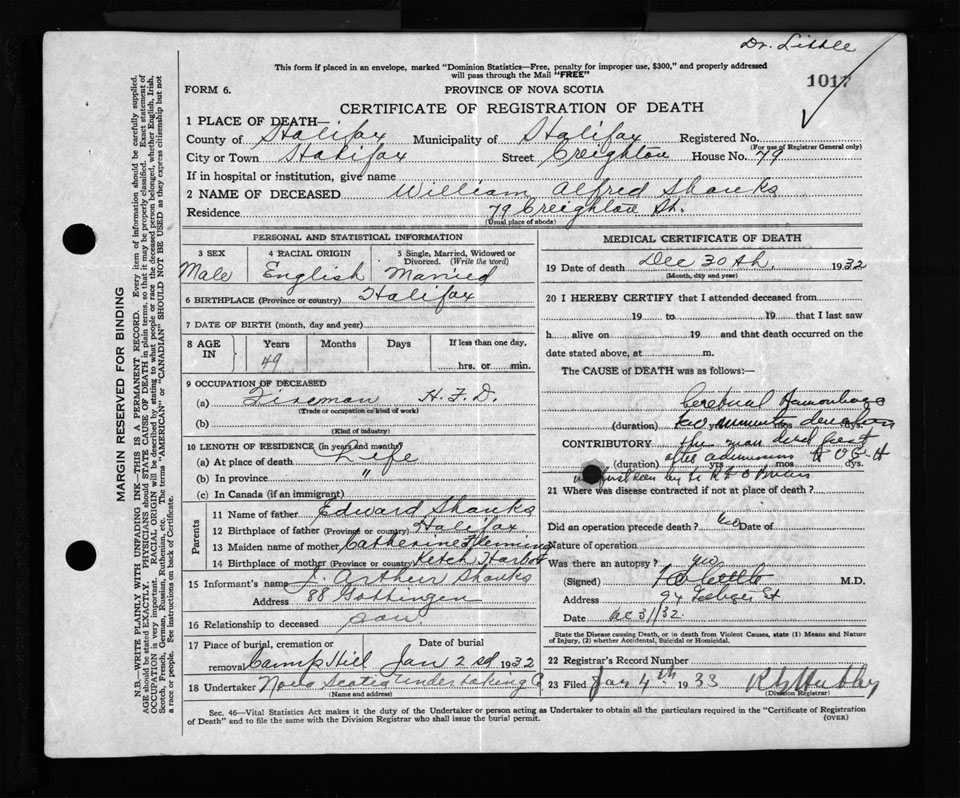 Dr. Little
This form if placed in an envelope, marked "Dominion Statistics—Free, penalty for improper use, $300," and properly addressed
will pass through the Mail "FREE"
1017
FORM 6.
PROVINCE OF NOVA SCOTIA
CERTIFICATE OF REGISTRATION OF DEATH
1 PLACE OF DEATH—
County of Halifax Municipality of Halifax Registered No.
(For use of Registrar General only)
City or Town Halifax Street Creighton House No. 79
If in hospital or institution, give name
2 NAME OF DECEASED William Alfred Shanks
Residence 79 Creighton St.
(Usual place of abode)
PERSONAL AND STATISTICAL INFORMATION
3 SEX 4 RACIAL ORIGIN 5 Single, Married, Widowed or
Divorced. (Write the word)
Male English Married
6 BIRTHPLACE (Province or country) Halifax
7 DATE OF BIRTH (month, day and year)
8 AGE IN Years Months Days If less than one day,
49 hrs. or min.
9 OCCUPATION OF DECEASED
(a) Fireman H.F.D.
(Trade or occupation or kind of work)
(b)
(Kind of industry)
10 LENGTH OF RESIDENCE (in years and months)
(a) At place of death Life
(b) In province "
(c) In Canada (if an immigrant)
Parents
11 Name of father Edward Shanks
12 Birthplace of father (Province or country) Halifax
13 Maiden name of mother Catherine Fleming
14 Birthplace of mother (Province or country) Ketch Harbor
15 Informant's name J. Arthur Shanks
Address 88 Gottingen
16 Relationship to deceased son
17 Place of burial, cremation or Date of burial
removal Camp Hill Jan 2nd 1932
18 Undertaker Nova Scotia Undertaking Co
(Name and address)
MEDICAL CERTIFICATE OF DEATH
19 Date of death Dec 30th, 1932
(Month, day and year)
20 I HEREBY CERTIFY that I attended deceased from
19 to 19 that I last saw
h alive on 19 and that death occurred on the
date stated above, at m.
The CAUSE of DEATH was as follows:—
Cerebral Hemorrhage
(duration) few minutes duration yrs. mos. dys.
CONTRIBUTORY the man died just
after admission to V G H
(duration) yrs. mos. dys.
just seen by Dr
21 Where was disease contracted if not at place of death?
Did an operation precede death? no Date of
Nature of operation
Was there an autopsy? no
(Signed) Little M.D.
Address 94 St
Date Dec 31/32
State the Disease causing Death, or in death from Violent Causes, state (1) Means and Nature
of Injury, (2) whether Accidental, Suicidal or Homicidal.
22 Registrar's Record Number
23 Filed Jan 4th 1933
(Division Registrar)
Sec. 46—Vital Statistics Act makes it the duty of the Undertaker or person acting as Undertaker to obtain all the particulars required in the "Certificate of Registration
of Death" and to file the same with the Division Registrar who shall issue the burial permit. (OVER)
MARGIN RESERVED FOR BINDING
N.B.—WRITE PLAINLY WITH UNFADING INK—THIS IS A PERMANENT RECORD. Every item of information should be carefully supplied.
AGE should be stated EXACTLY. PHYSICIANS should STATE CAUSE OF DEATH in plain terms, so that it may be properly classified. Exact statement of
OCCUPATION is very important. RACIAL ORIGIN will be described by stating to what people or race the deceased person belonged, whether English, Irish,
Scotch, French, German, Russian, Ruthenian, etc. The terms "AMERICAN" or "CANADIAN" SHOULD NOT BE USED as they express citizenship but not
a race or people. See instructions on back of Certificate.